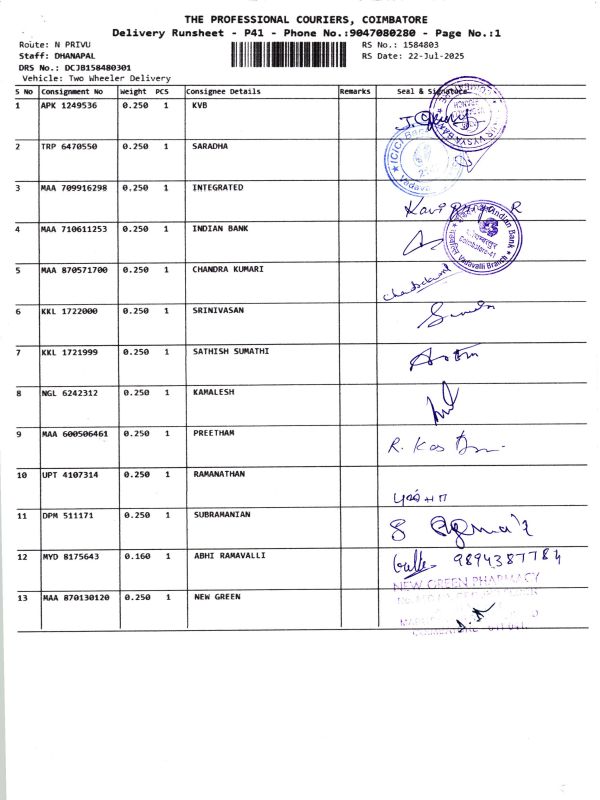 THE PROFESSIONAL COURIERS, COIMBATORE
Delivery Runsheet - P41 - Phone No.:9047080280 - Page No.:1
Route: N PRIVU RS No.: 1584803
Staff: DHANAPAL RS Date: 22-Jul-2025
DRS No.: DCJB158480301
Vehicle: Two Wheeler Delivery
S No Consignment No Weight PCS Consignee Details Remarks Seal & Signature
1 APK 1249536 0.250 1 KVB
2 TRP 6470550 0.250 1 SARADHA
ICICI Ba
Vadava
3 MAA 709916298 0.250 1 INTEGRATED
4 MAA 710611253 0.250 1 INDIAN BANK
Indian Bank
Coimbatore-41
Vadavalli Branch
5 MAA 870571700 0.250 1 CHANDRA KUMARI
6 KKL 1722000 0.250 1 SRINIVASAN
7 KKL 1721999 0.250 1 SATHISH SUMATHI
8 NGL 6242312 0.250 1 KAMALESH
9 MAA 600506461 0.250 1 PREETHAM
10 UPT 4107314 0.250 1 RAMANATHAN
11 DPM 511171 0.250 1 SUBRAMANIAN
12 MYD 8175643 0.160 1 ABHI RAMAVALLI 9894387784
NEW GREEN PHARMACY
13 MAA 870130120 0.250 1 NEW GREEN